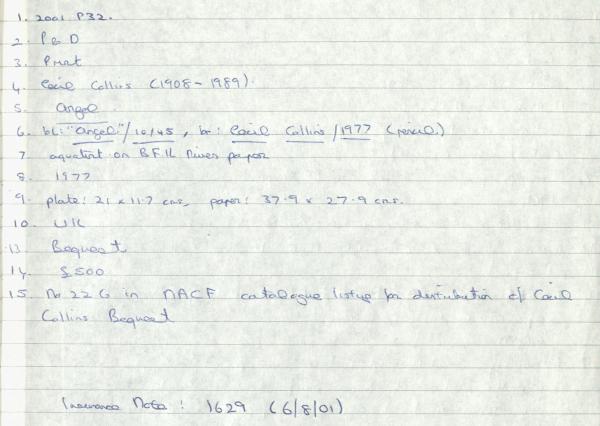 1. 2001 P32.
2. P & D
3. Print
4. Cecil Collins (1908-1989).
5. Angel
6. bl: "Angel"/10/45, br: Cecil Collins/1977 (pencil)
7. aquatint on BFK Rives paper
8. 1977
9. plate: 21 x 11.7 cms, paper: 37.9 x 27.9 cms.
10. UK
13. Bequest
14. £500
15. No 22 G in NACF catalogue listing for distribution of Cecil
Collins Bequest
Insurance Note: 1629 (6/8/01)